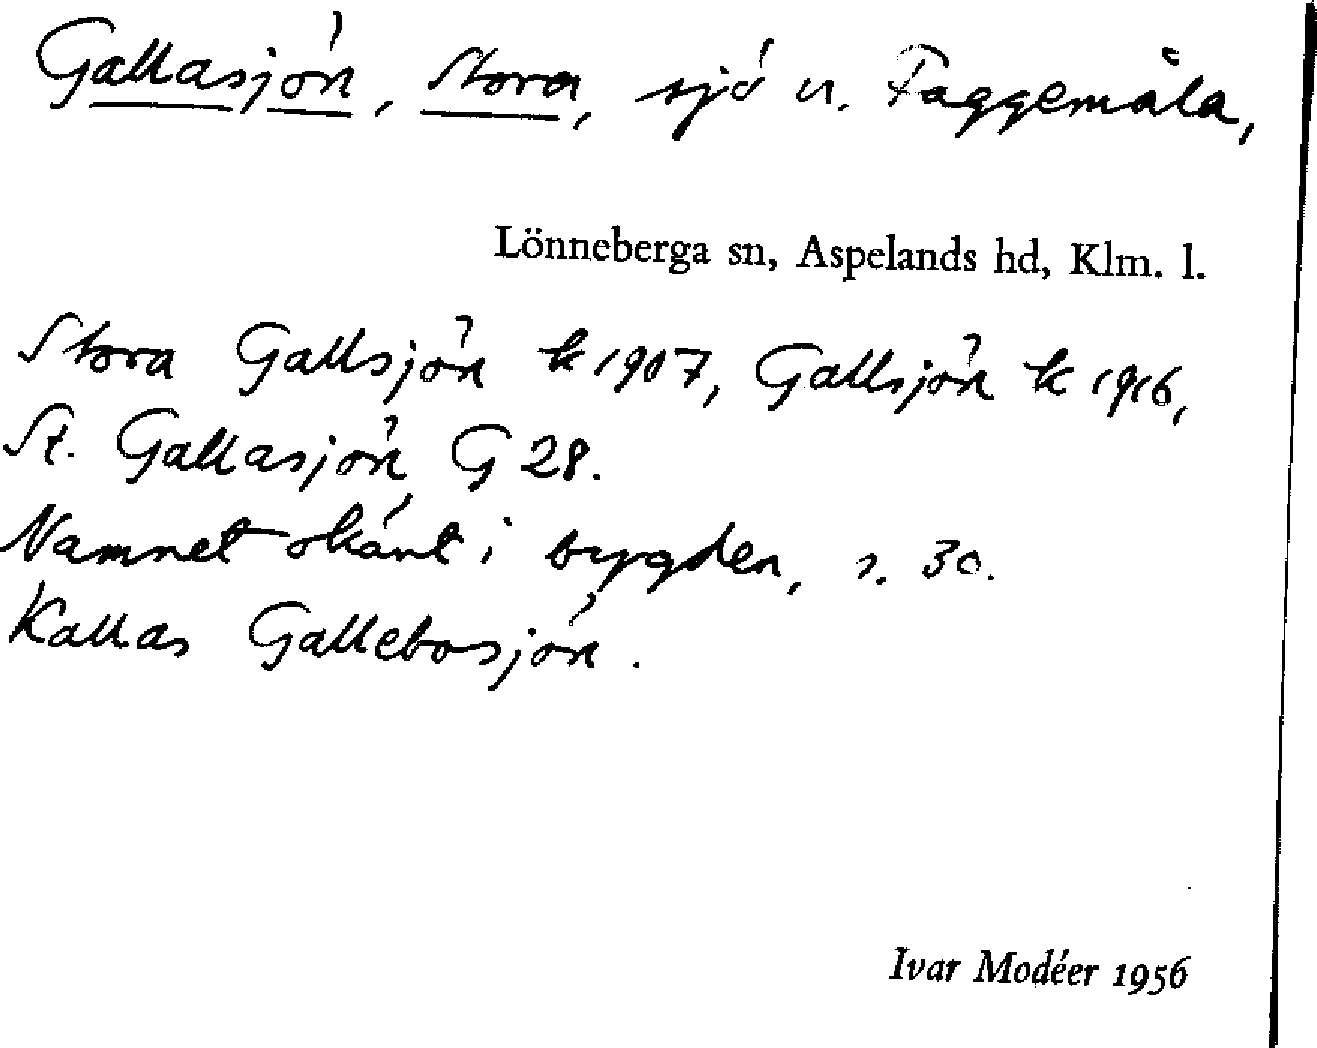 Gallasjön, Stora, sjö n. Faggemåla,
Lönneberga sn, Aspelands hd, Klm. l.
Stora Gallsjön k 1907, Gallsjön k 1916,
St. Gallasjön G 28.
Namnet okänt i bygden, s. 30.
Kallas Gallebosjön.
Ivar Modéer 1956